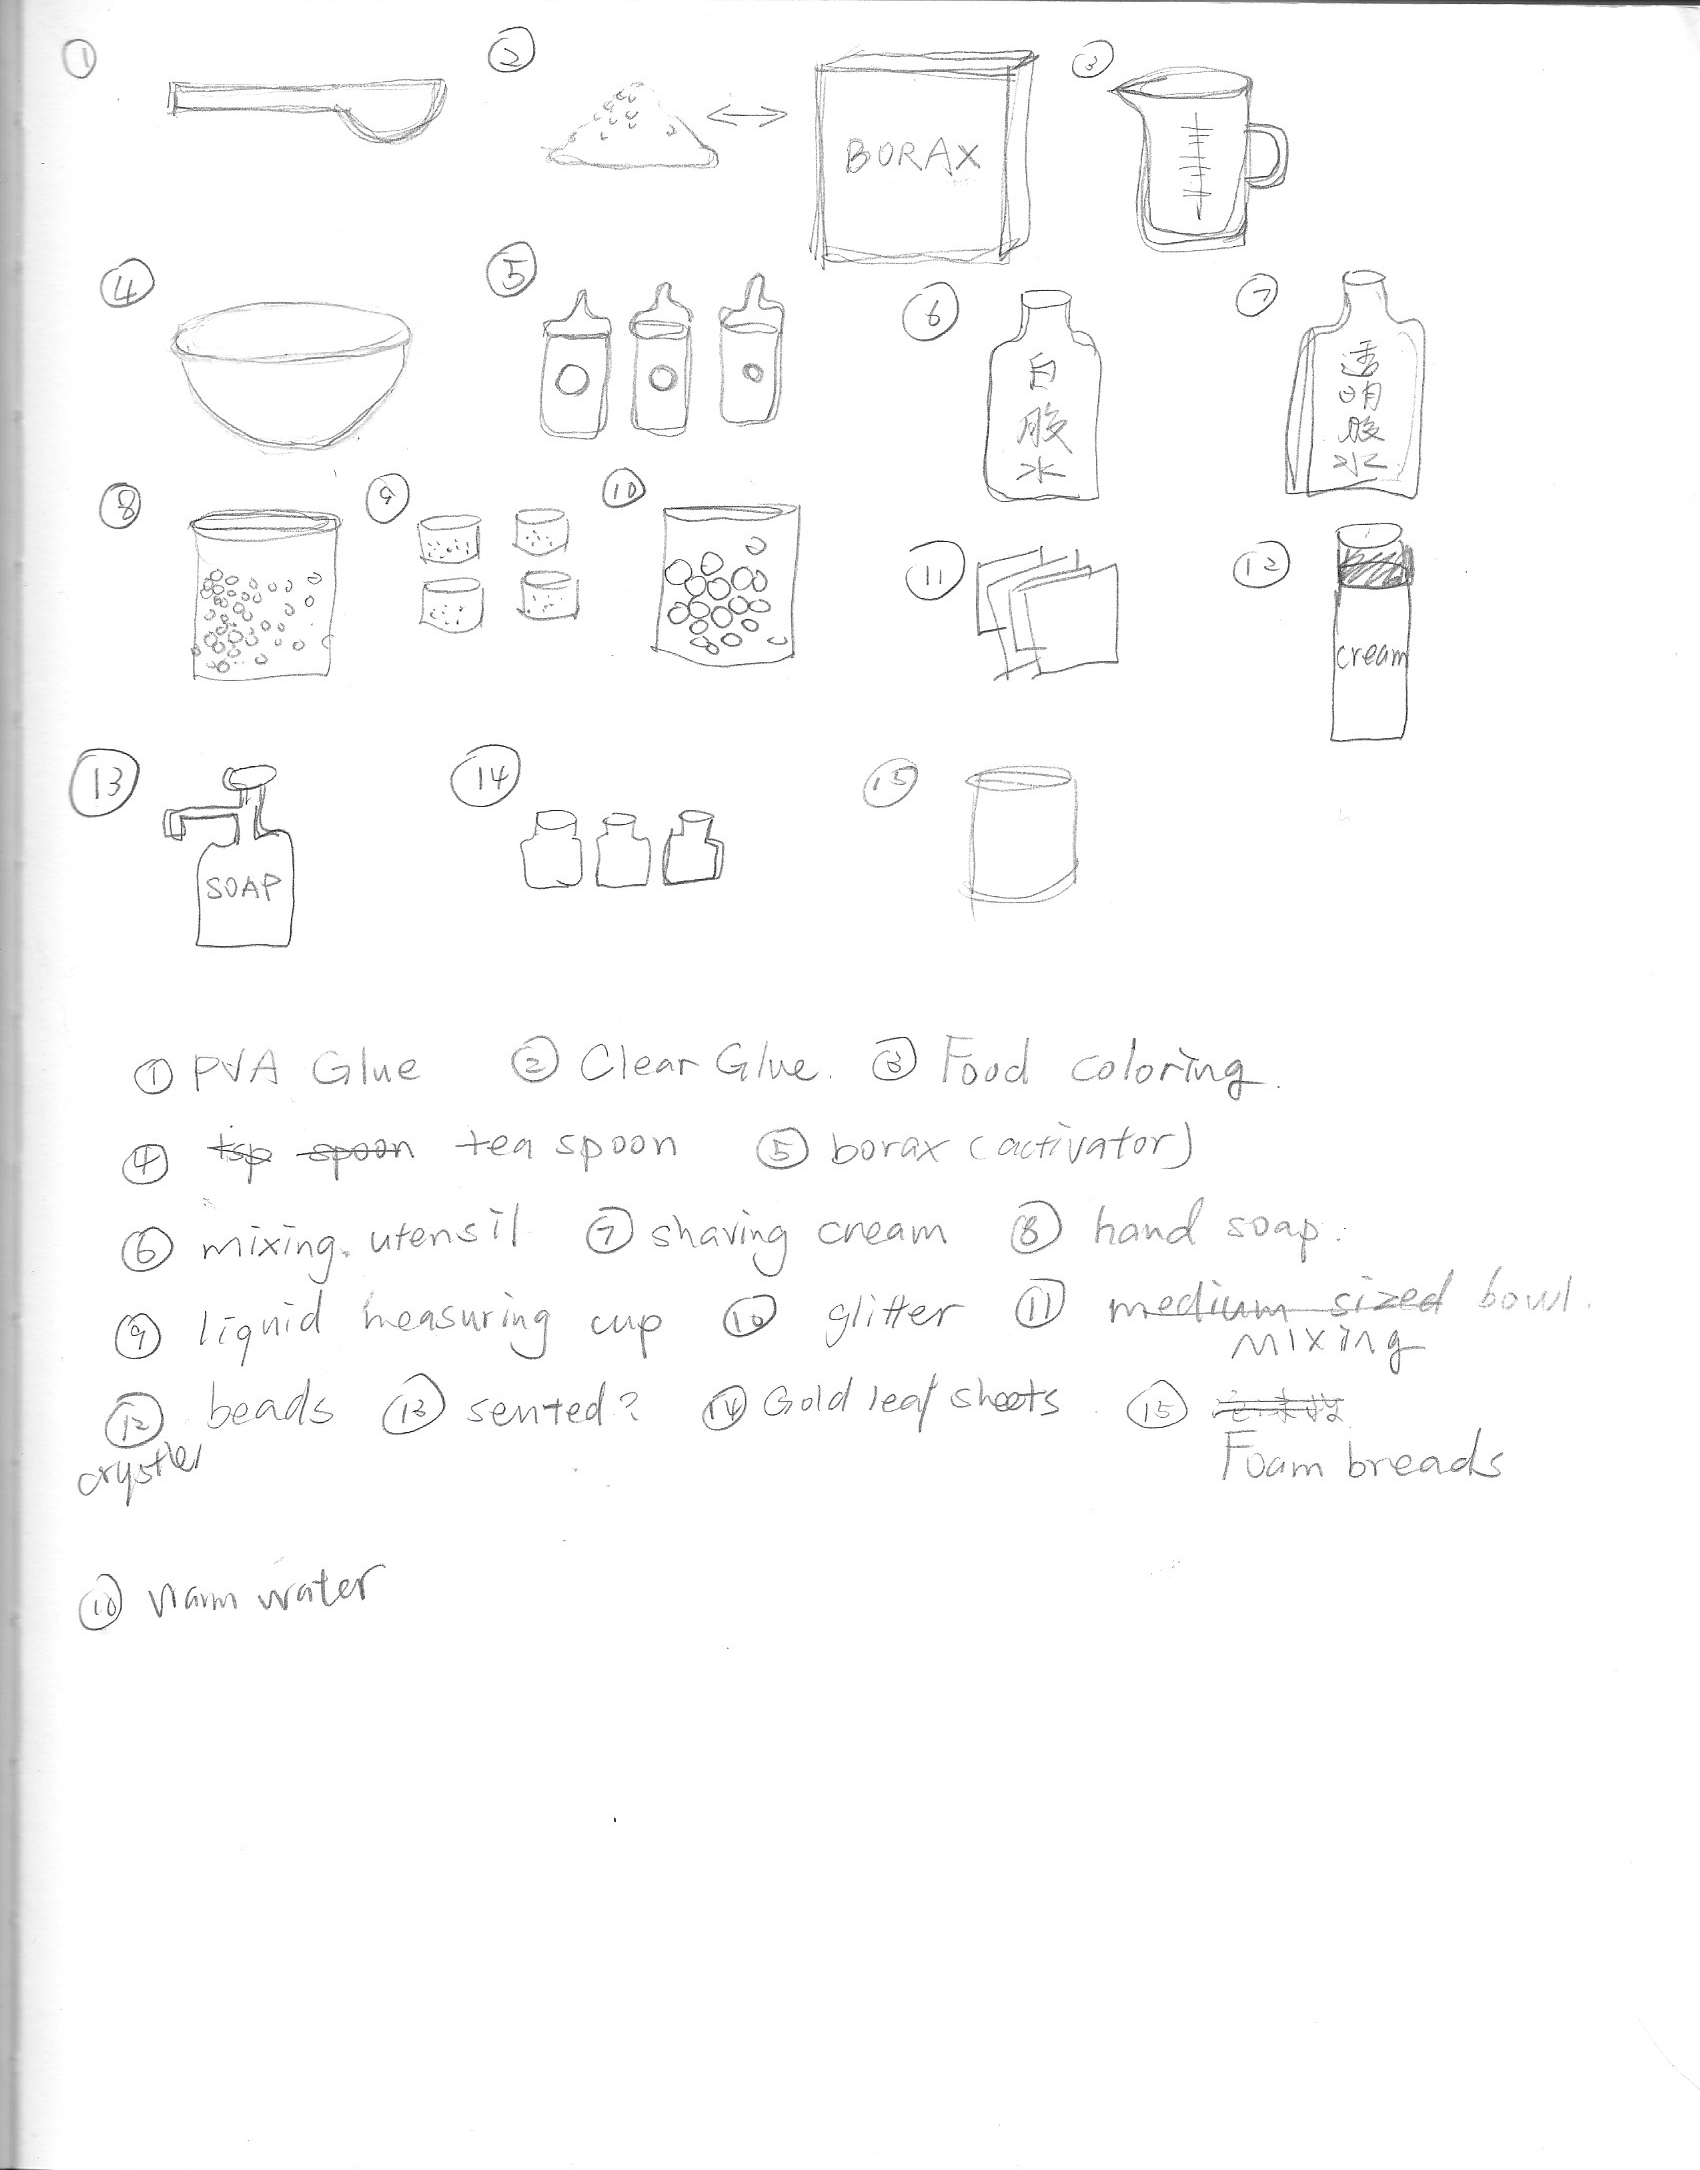 ① ② BORAX ③
④ ⑤ ⑥ 白胶水 ⑦ 透明胶水
⑧ ⑨ ⑩ ⑪ ⑫ cream
⑬ SOAP ⑭ ⑮
① PVA Glue ② Clear Glue. ③ Food coloring.
④ tsp spoon tea spoon ⑤ borax (activator)
⑥ mixing. utensil ⑦ shaving cream ⑧ hand soap.
⑨ liquid measuring cup ⑩ glitter ⑪ medium sized bowl.
mixing
⑫ beads ⑬ sented? ⑭ Gold leaf sheets ⑮
crystler
Foam breads
⑩ warm water